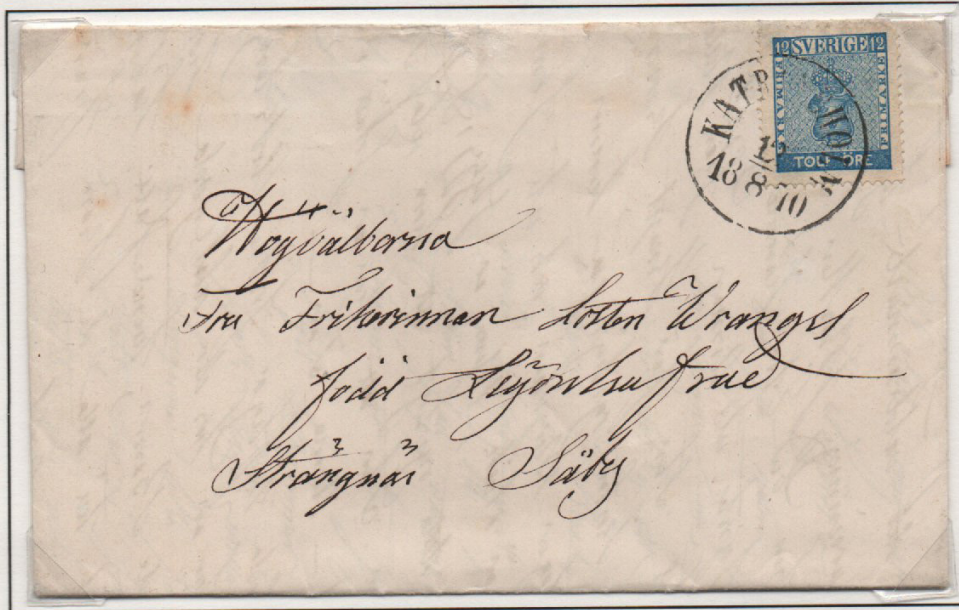 12 SVERIGE 12
FRIMÄRKE
TOLF ÖRE
KATR HOLM
18 8 70
Högvälborna
Fru Friherinnan Lotten Wrangel
född Leijonhufvud
Strängnäs Säby